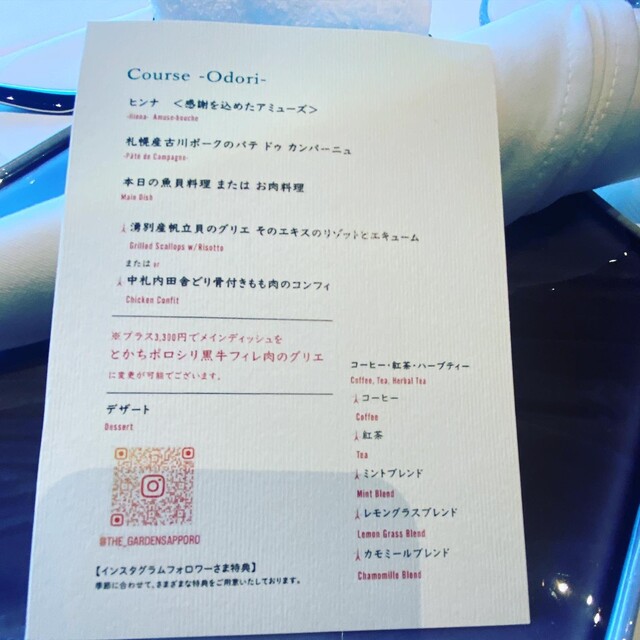 Course -Odori-
ヒンナ ＜感謝を込めたアミューズ＞
-Hinna- Amuse-bouche
札幌産古川ポークのパテ ドゥ カンパーニュ
-Pâté de Campagne-
本日の魚貝料理 または お肉料理
Main Dish
湧別産帆立貝のグリエ そのエキスのリゾットとエキューム
Grilled Scallops w/Risotto
または or
中札内田舎どり骨付きもも肉のコンフィ
Chicken Confit
※プラス3,300円でメインディッシュを
とかちポロシリ黒牛フィレ肉のグリエ
に変更が可能でございます。
デザート
Dessert
@THE_GARDENSAPPORO
【インスタグラムフォロワーさま特典】
季節に合わせて、さまざまな特典をご用意いたしております。
コーヒー・紅茶・ハーブティー
Coffee, Tea, Herbal Tea
コーヒー
Coffee
紅茶
Tea
ミントブレンド
Mint Blend
レモングラスブレンド
Lemon Grass Blend
カモミールブレンド
Chamomille Blend